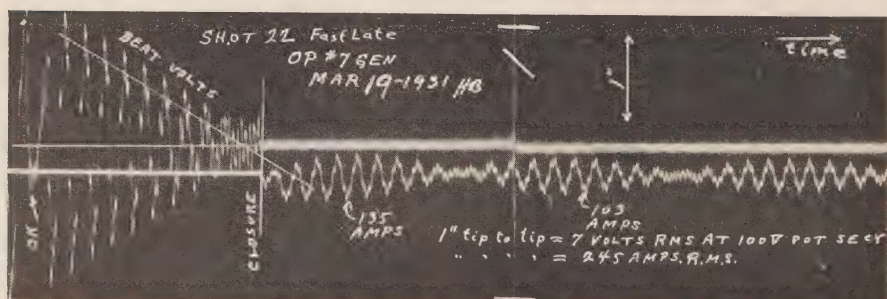 SHOT 22 Fast Late
OP #7 GEN
MAR 19-1931 HB
BEAT VOLTS
time
1"
OK
CLOSURE
135
AMPS
103
AMPS
1" tip to tip = 7 VOLTS RMS AT 100V POT SECY
" " " " = 245 AMPS. R.M.S.